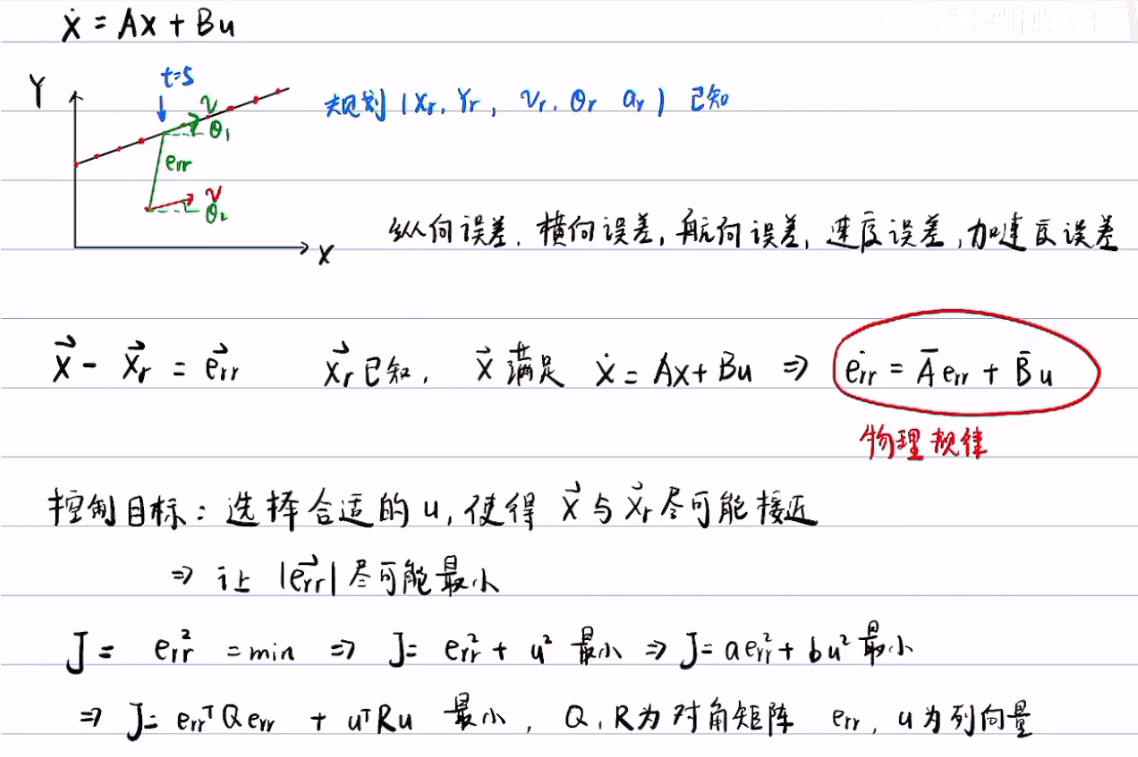 ẋ = Ax + Bu
Y
t=5
v
θ₁
err
v
θ₂
X
规划 (Xr, Yr, vr, θr ar) 已知
纵向误差, 横向误差, 航向误差, 速度误差, 加速度误差
x⃗ - x⃗r = e⃗rr x⃗r已知, x⃗ 满足 ẋ = Ax + Bu ⇒ ėrr = Āerr + B̄u
物理规律
控制目标: 选择合适的 u, 使得 x⃗ 与 x⃗r 尽可能接近
⇒ 让 |e⃗rr| 尽可能最小
J = err² = min ⇒ J = err² + u² 最小 ⇒ J = aerr² + bu² 最小
⇒ J = errᵀQerr + uᵀRu 最小, Q, R为对角矩阵 err, u为列向量